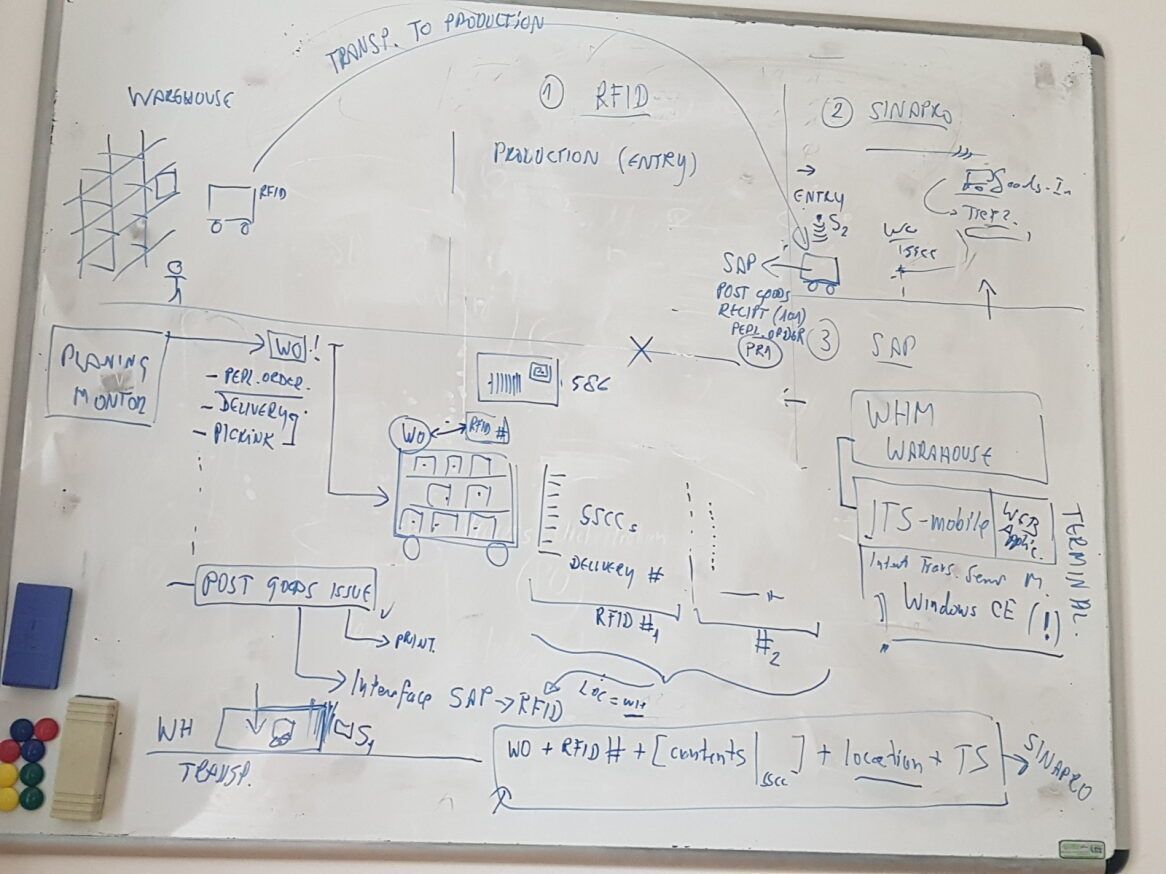 TRANSP. TO PRODUCTION
WAREHOUSE
RFID
① RFID
PRODUCTION (ENTRY)
② SINAPRO
Goods-In
ENTRY
S2
WO
SSCC
SAP
POST GOODS
RECIPT (101)
REPL. ORDER
PR1
③ SAP
PLANING
MONTOR
WO!
- REPL. ORDER.
- DELIVERY
- PICKINK
WO
RFID #
SSCCs
DELIVERY #
RFID #1
#2
WHM
WARAHOUSE
ITS-mobile
WEB
Applic.
TERMINAL.
Windows CE (!)
POST GOODS ISSUE
PRINT.
Interface SAP → RFID
LOC = WH
WH
S1
TRANSP.
WO + RFID # + [contents | SSCC ] + location + TS
SINAPRO